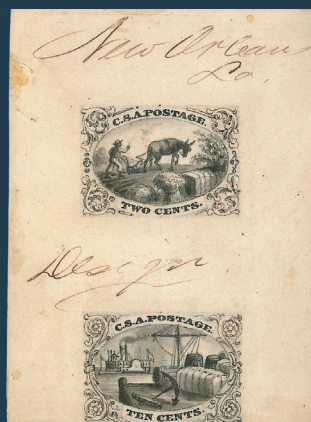 New Orleans
La.
C.S.A. POSTAGE.
TWO CENTS.
Design
C.S.A. POSTAGE.
TEN CENTS.